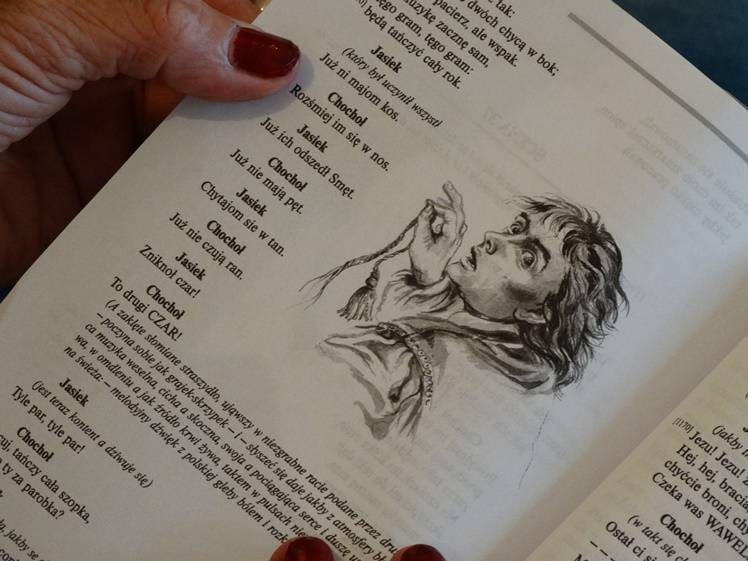 dwóch chycą w bok;
pacierz, ale wspak.
muzykę zacznę sam,
tego gram, tego gram:
będą tańczyć cały rok.
Jasiek
(który był uczynił wszyst)
Już ni majom kos.
Chochoł
Rozśmiej im się w nos.
Jasiek
Już ich odszedł Smęt.
Chochoł
Już nie mają pęt.
Jasiek
Chytajom sie w tan.
Chochoł
Już nie czują ran.
Jasiek
Zniknoł czar!
Chochoł
To drugi CZAR!
(A zaklęte słomiane straszydło, ująwszy w niezgrabne racie podane przez
– poczyna sobie jak grajek-skrzypek – i – słyszeć się daje jakby z atmosfery
ca muzyka weselna, cicha a skoczna, swoja a pociągająca serce i duszę
wa, w omdleniu a jak źródło krwi żywa, taktem w pulsach
na świeża: – melodyjny dźwięk z polskiej gleby bólem i
Jasiek
(jest teraz kontent a dziwuje się)
Tyle par, tyle par!
Chochoł
tańczy cała szopka,
a ty za parobka?
jakby se
[1170] Jezu! Jezu!
Hej, hej,
chyćcie broni,
Czeka was
Chochoł
(w takt się
Ostał ci